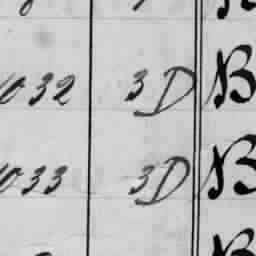 1032 3D B
1033 3D B